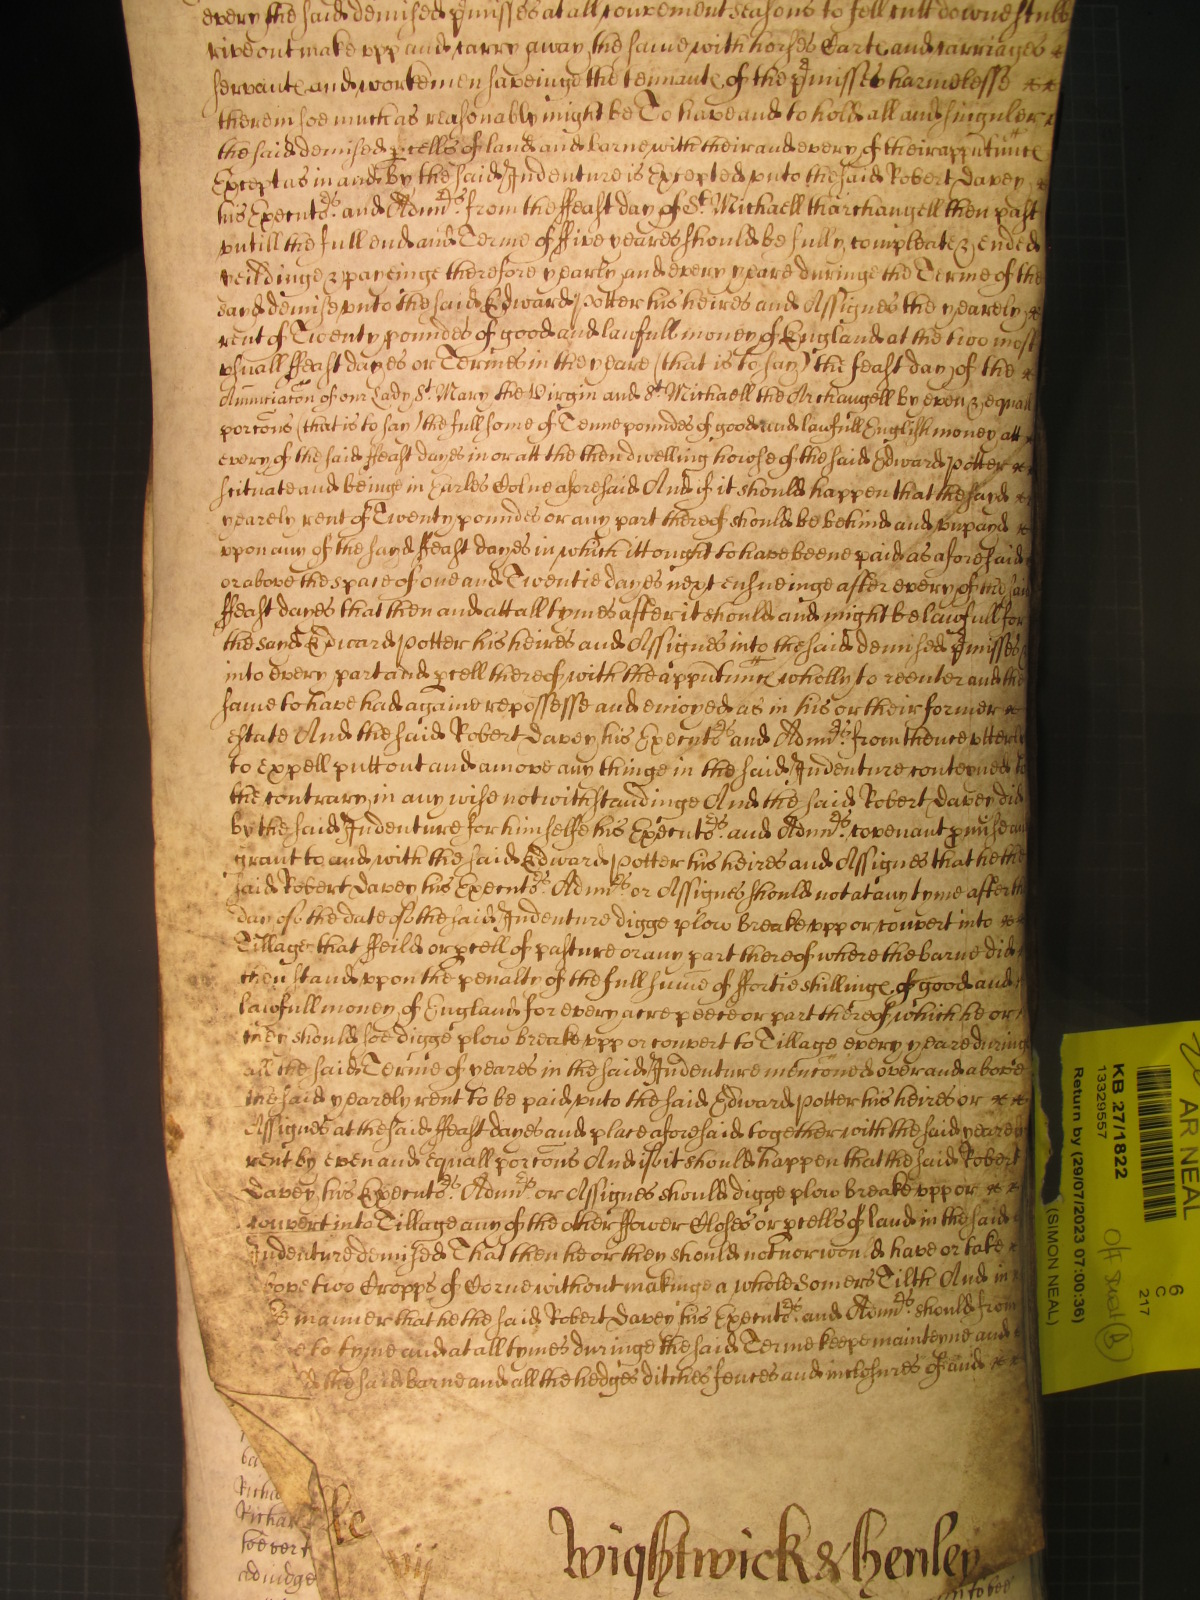 every the said demised pmisses at all convenient seasons to fell cutt downe stubb
rive out make vpp and carry away the same with horses Carte and carriages
servante and workemen saveinge the tennante of the pmisses harmelesse
therein soe much as reasonably might be To have and to hold all and singuler
the said demised pcells of land and barne with their and every of their apputnnce
Except as in and by the said Indenture is Excepted vnto the said Robert Davey
his Execut.rs and Admi.rs from the ffeast day of St. Michaell tharchangell then past
vntill the full end and Terme of ffive yeares should be fully compleate & ended
yeildinge & payeinge therefore yearly and every yeare duringe the Terme of the
sayd demise vnto the said Edward Potter his heires and Assignes the yearely
rent of Twenty poundes of good and lawfull money of England at the two most
vsuall ffeast dayes or Termes in the yeare (that is to say) the feast day of the
Annunciacon of our Lady St. Mary the Virgin and St Michaell the Archangell by even & equall
porcons (that is to say) the full some of Tenne poundes of good and lawfull English money att
every of the said ffeast dayes in or att the then dwelling howse of the said Edward Potter
scituate and beinge in Earles Colne aforesaid And if it should happen that the sayd
yearely rent of Twenty poundes or any part thereof should be behind and vnpayd
vpon any of the sayd ffeast dayes in which itt ought to have beene paid as aforesaid
or above the space of one and Twentie dayes next ensueinge after every of the said
ffeast dayes that then and att all tymes after it should and might be lawfull for
the sayd Edward Potter his heires and Assignes into the said demised pmisses
into every part and pcell thereof with the apputnnce wholly to reenter and the
same to have had againe repossesse and enioyed as in his or their former
estate And the said Robert Davey his Execut.rs and Admi.rs from thence vtterly
to expell putt out and amove any thinge in the said Indenture conteyned to
the contrary in any wise notwithstandinge And the said Robert Davey did
by the said Indenture for himselfe his Execut.rs and Admi.rs covenant pmise and
grant to and with the said Edward Potter his heires and Assignes that he the
said Robert Davey his Execut.rs Admi.rs or Assignes should not at any tyme after the
day of the date of the said Indenture digge plow breake vpp or convert into
Tillage that ffeild or pcell of pasture or any part thereof where the barne did
then stand vpon the penalty of the full sume of ffortie shillinge of good and
lawfull money of England for every acre peece or part thereof which he or
they should soe digge plow breake vpp or convert to Tillage every yeare during
all the said Terme of yeares in the said Indenture menconed over and above
the said yearely rent to be paid vnto the said Edward Potter his heires or
Assignes at the said ffeast dayes and place aforesaid together with the said yearely
rent by even and equall porcons And if it should happen that the said Robert
Davey his Execut.rs Admi.rs or Assignes should digge plow breake vpp or
convert into Tillage any of the other ffower Closes or pcells of land in the said
Indenture demised That then he or they should not nor would have or take
bove two Cropps of Corne without makinge a whole Somers Tilth And in
manner that he the said Robert Davey his Execut.rs and Admi.rs should from
e to tyme and at all tymes duringe the said Terme keepe mainteyne and
the said barne and all the hedges ditches fences and inclosures of and
ba
Richa
Richar
toe very
adiudge
Wightwick & Henley
AR NEAL
6
C
217
KB 27/1822
13329557
Return by (29/07/2023 07:00:36)
(SIMON NEAL)